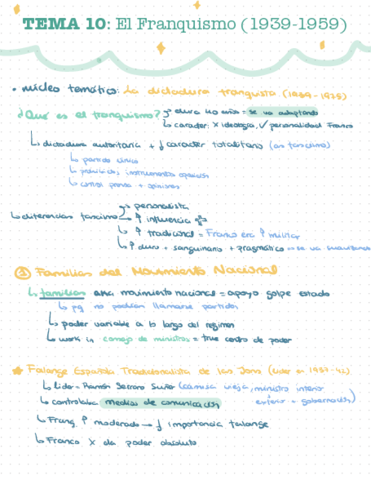 TEMA 10: El Franquismo (1939-1959)
• Núcleo temático: La dictadura franquista (1939-1975)
¿Qué es el franquismo? dura 40 años = se va adaptando
↳ caracter: X ideología, ✓ personalidad Franco
↳ dictadura autoritaria + ↓ caracter totalitario (as fascismo)
↳ partido único
↳ prohibición, instrumentos opresión
↳ control prensa + opiniones
↳ diferencias fascismo → personalista
↳ ↑ influencia
↳ ↑ tradicional = Franco era ↑ militar
↳ ↑ duro + sanguinario + pragmático = se va suavizando
① Familias del Movimiento Nacional
↳ familias movimiento nacional = apoyo golpe estado
↳ pq no podían llamarse partidos
↳ poder variable a lo largo del régimen
↳ work in consejo de ministros = true centro de poder
★ Falange Española Tradicionalista de las Jons (líder en 1937-42)
↳ líder = Ramón Serrano Suñer (camisa vieja, ministro interior
exterior + gobernación)
↳ controlaba medios de comunicación
↳ Franq ↑ moderado → ↓ importancia falange
↳ Franco X da poder absoluto